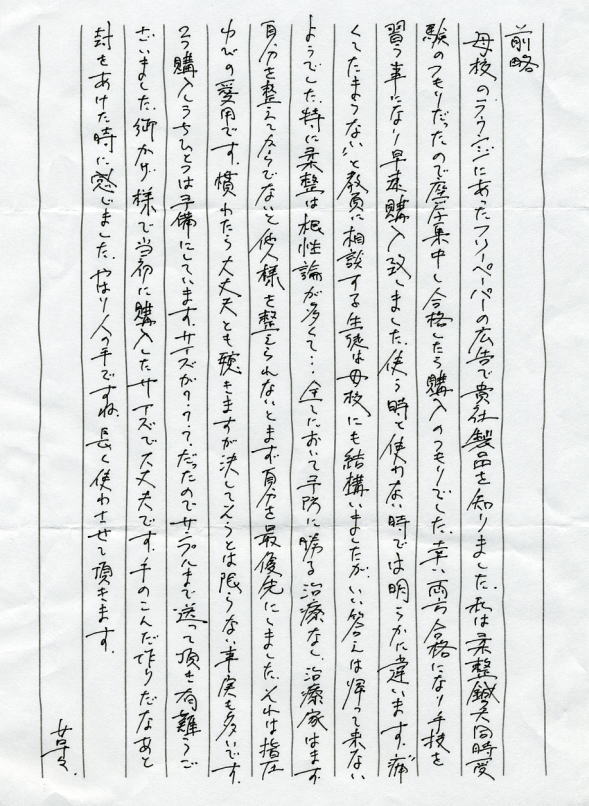 前略
母校のラウンジにあったフリーペーパーの広告で貴社製品を知りました。私は柔整鍼灸同時受
験のつもりだったので座学集中し合格したら購入のつもりでした。幸い両方合格になり手技を
習う事になり早速購入致しました。使う時と使わない時では明らかに違います。痛
くてたまらない、と教員に相談する生徒は母校にも結構いましたが、いい答えは帰って来ない
ようでした。特に柔整は根性論が多くて… 全てにおいて予防に勝る治療なし、治療家はまず
自分を整えてからでないと他人様を整えられないとまず自分を最優先にしました。それは指圧
ゆびの愛用です。慣れたら大丈夫とも聴きますが決してそうとは限らない事実も多いです。
2つ購入しうちひとつは予備にしています。サイズが???だったのでサンプルまで送って頂き有難うご
ざいました。御かげ様で当初に購入したサイズで大丈夫です。手のこんだ作りだなあと
封をあけた時に感じました。やはり人の手ですね。長く使わさせて頂きます。
草々.